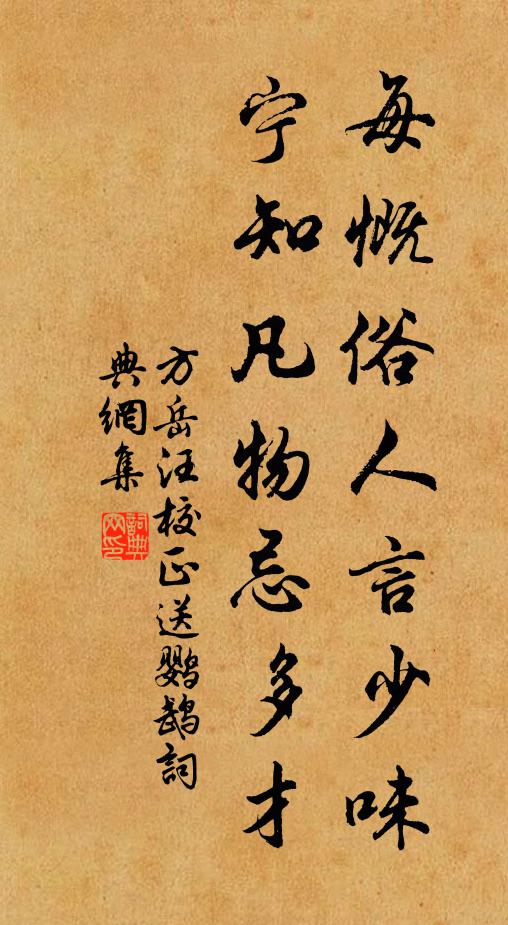 每慨俗人言少味
宁知凡物忌多才
方岳汪校正送鹦鹉詞
典網集
詞典
网印